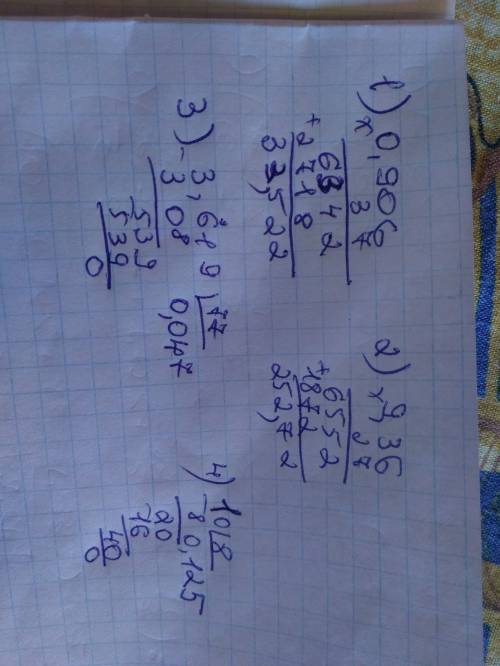 1) × 0,906
37
6342
+ 2718
33,522
2) × 9,36
27
6552
+ 1872
252,72
3) - 3,619 | 77
308 0,047
539
539
0
4) 10 | 8
- 8 0,125
20
16
40
0